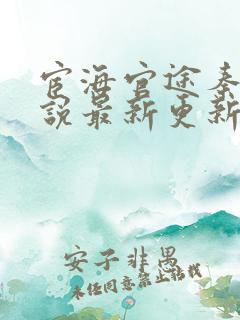 宦海官途秦
说最新更新
安子非愚
未经同意禁止转载